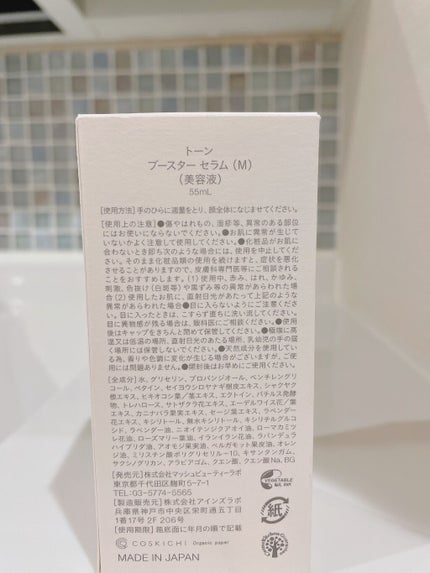 トーン
ブースター セラム (M)
(美容液)
55mL
[使用方法] 手のひらに適量をとり、顔全体になじませてください。
[使用上の注意] ●傷やはれもの、湿疹等、異常のある部位
にはお使いにならないでください。●お肌に異常が生じて
いないかよく注意して使用してください。●化粧品がお肌に
合わないとき即ち次のような場合には、使用を中止してくだ
さい。そのまま化粧品類の使用を続けますと、症状を悪化
させることがありますので、皮膚科専門医等にご相談される
ことをおすすめします。(1) 使用中、赤み、はれ、かゆみ、
刺激、色抜け(白斑等)や黒ずみ等の異常があらわれた場
合 (2) 使用したお肌に、直射日光があたって上記のような
異常があらわれた場合●目に入らないようにご注意くださ
い。目に入ったときは、こすらず直ちに洗い流してください。
目に異物感が残る場合は、眼科医にご相談ください。●使用
後はキャップをきちんと閉めて保管してください。●極端に高
温又は低温の場所、直射日光のあたる場所、乳幼児の手の届
く場所には保管しないでください。●天然成分を使用してい
る為、香りや色調に変化が生じる場合がございますが、ご使
用には問題ありません。●開封後はお早めにご使用ください。
[全成分] 水、グリセリン、プロパンジオール、ペンチレングリ
コール、ベタイン、セイヨウシロヤナギ樹皮エキス、シャクヤク
根エキス、ヒキオコシ葉/茎エキス、エクトイン、パチルス発酵
物、トレハロース、サトザクラ花エキス、エーデルワイス花/葉
エキス、カニナバラ果実エキス、セージ葉エキス、ラベンダー
花エキス、キシリトール、無水キシリトール、キシリチルグルコ
シド、ラベンダー油、ニオイテンジクアオイ油、ローマカミツ
レ花油、ローズマリー葉油、イランイラン花油、ラバンデュラ
ハイブリダ油、アオモジ果実油、ベルガモット果皮油、オレン
ジ油、ミリスチン酸ポリグリセリル-10、キサンタンガム、
サクシノグリカン、アラビアゴム、クエン酸、クエン酸Na、BG
[発売元] 株式会社マッシュビューティーラボ
東京都千代田区麹町5-7-1
TEL:03-5774-5565
[製造販売元] 株式会社アインズラボ
兵庫県神戸市中央区栄町通五丁目
1番17号 2F 206号
[使用期限] 箱底面に年月の順で記載
COSKICHI Organic paper
MADE IN JAPAN
VEGETABLE
OIL INK
紙